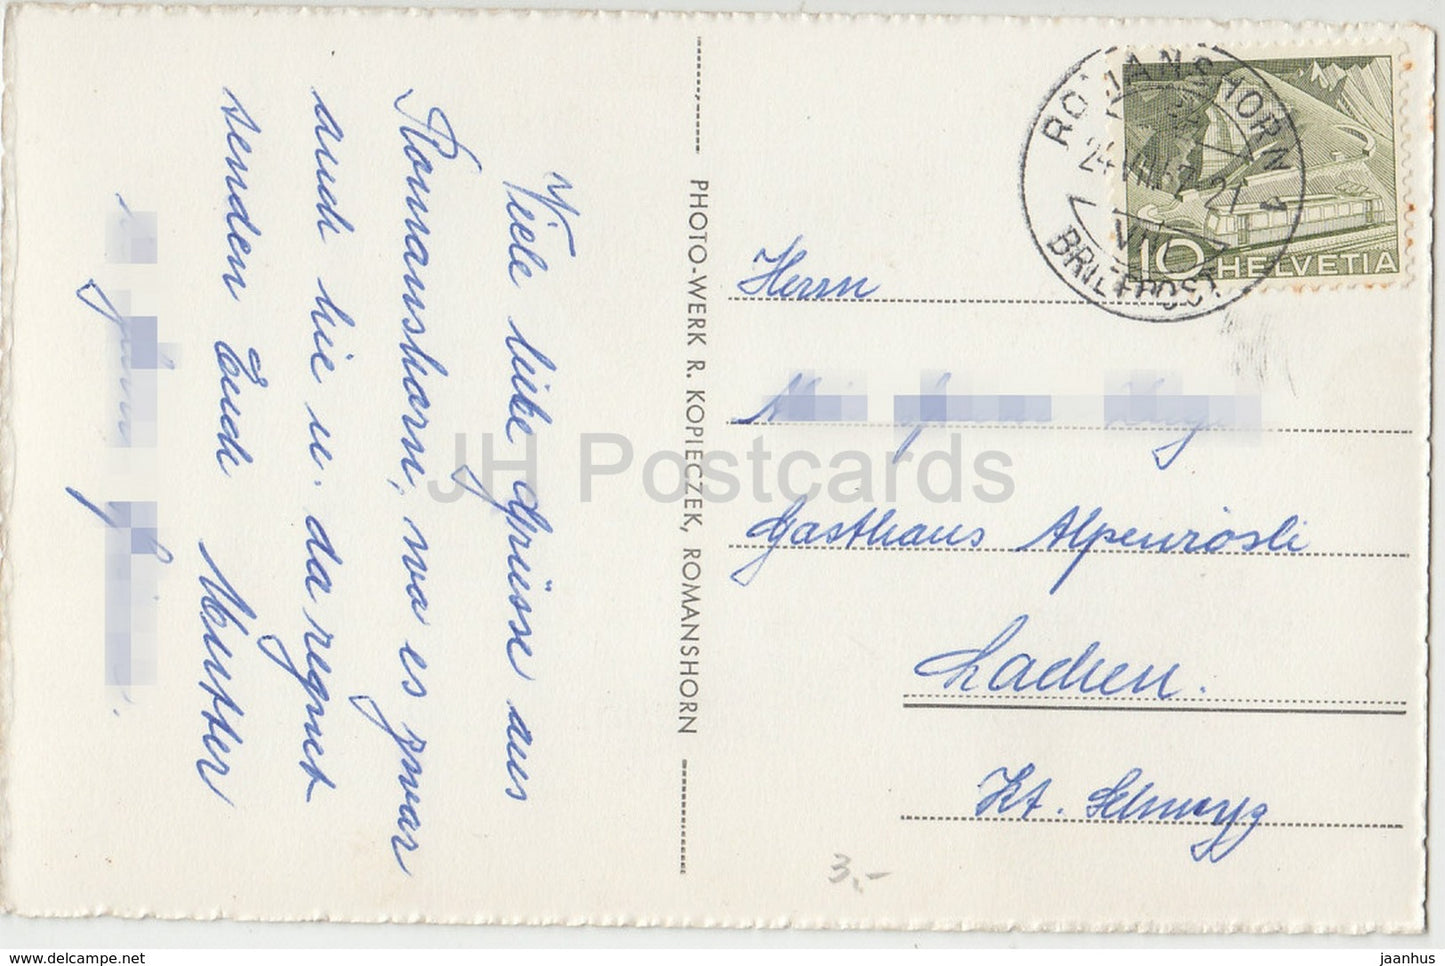 Viele liebe Grüsse aus
Romanshorn, wo es zwar
auch hie u. da regnet
senden Euch Mutter
PHOTO-WERK R. KOPIECZEK, ROMANSHORN
ROMANSHORN
BRIEFPOST
10 HELVETIA
Herrn
Gasthaus Alpenrösli
Lachen.
Kt. Schwyz
3.-
JH Postcards
jaanhus
www.delcampe.net